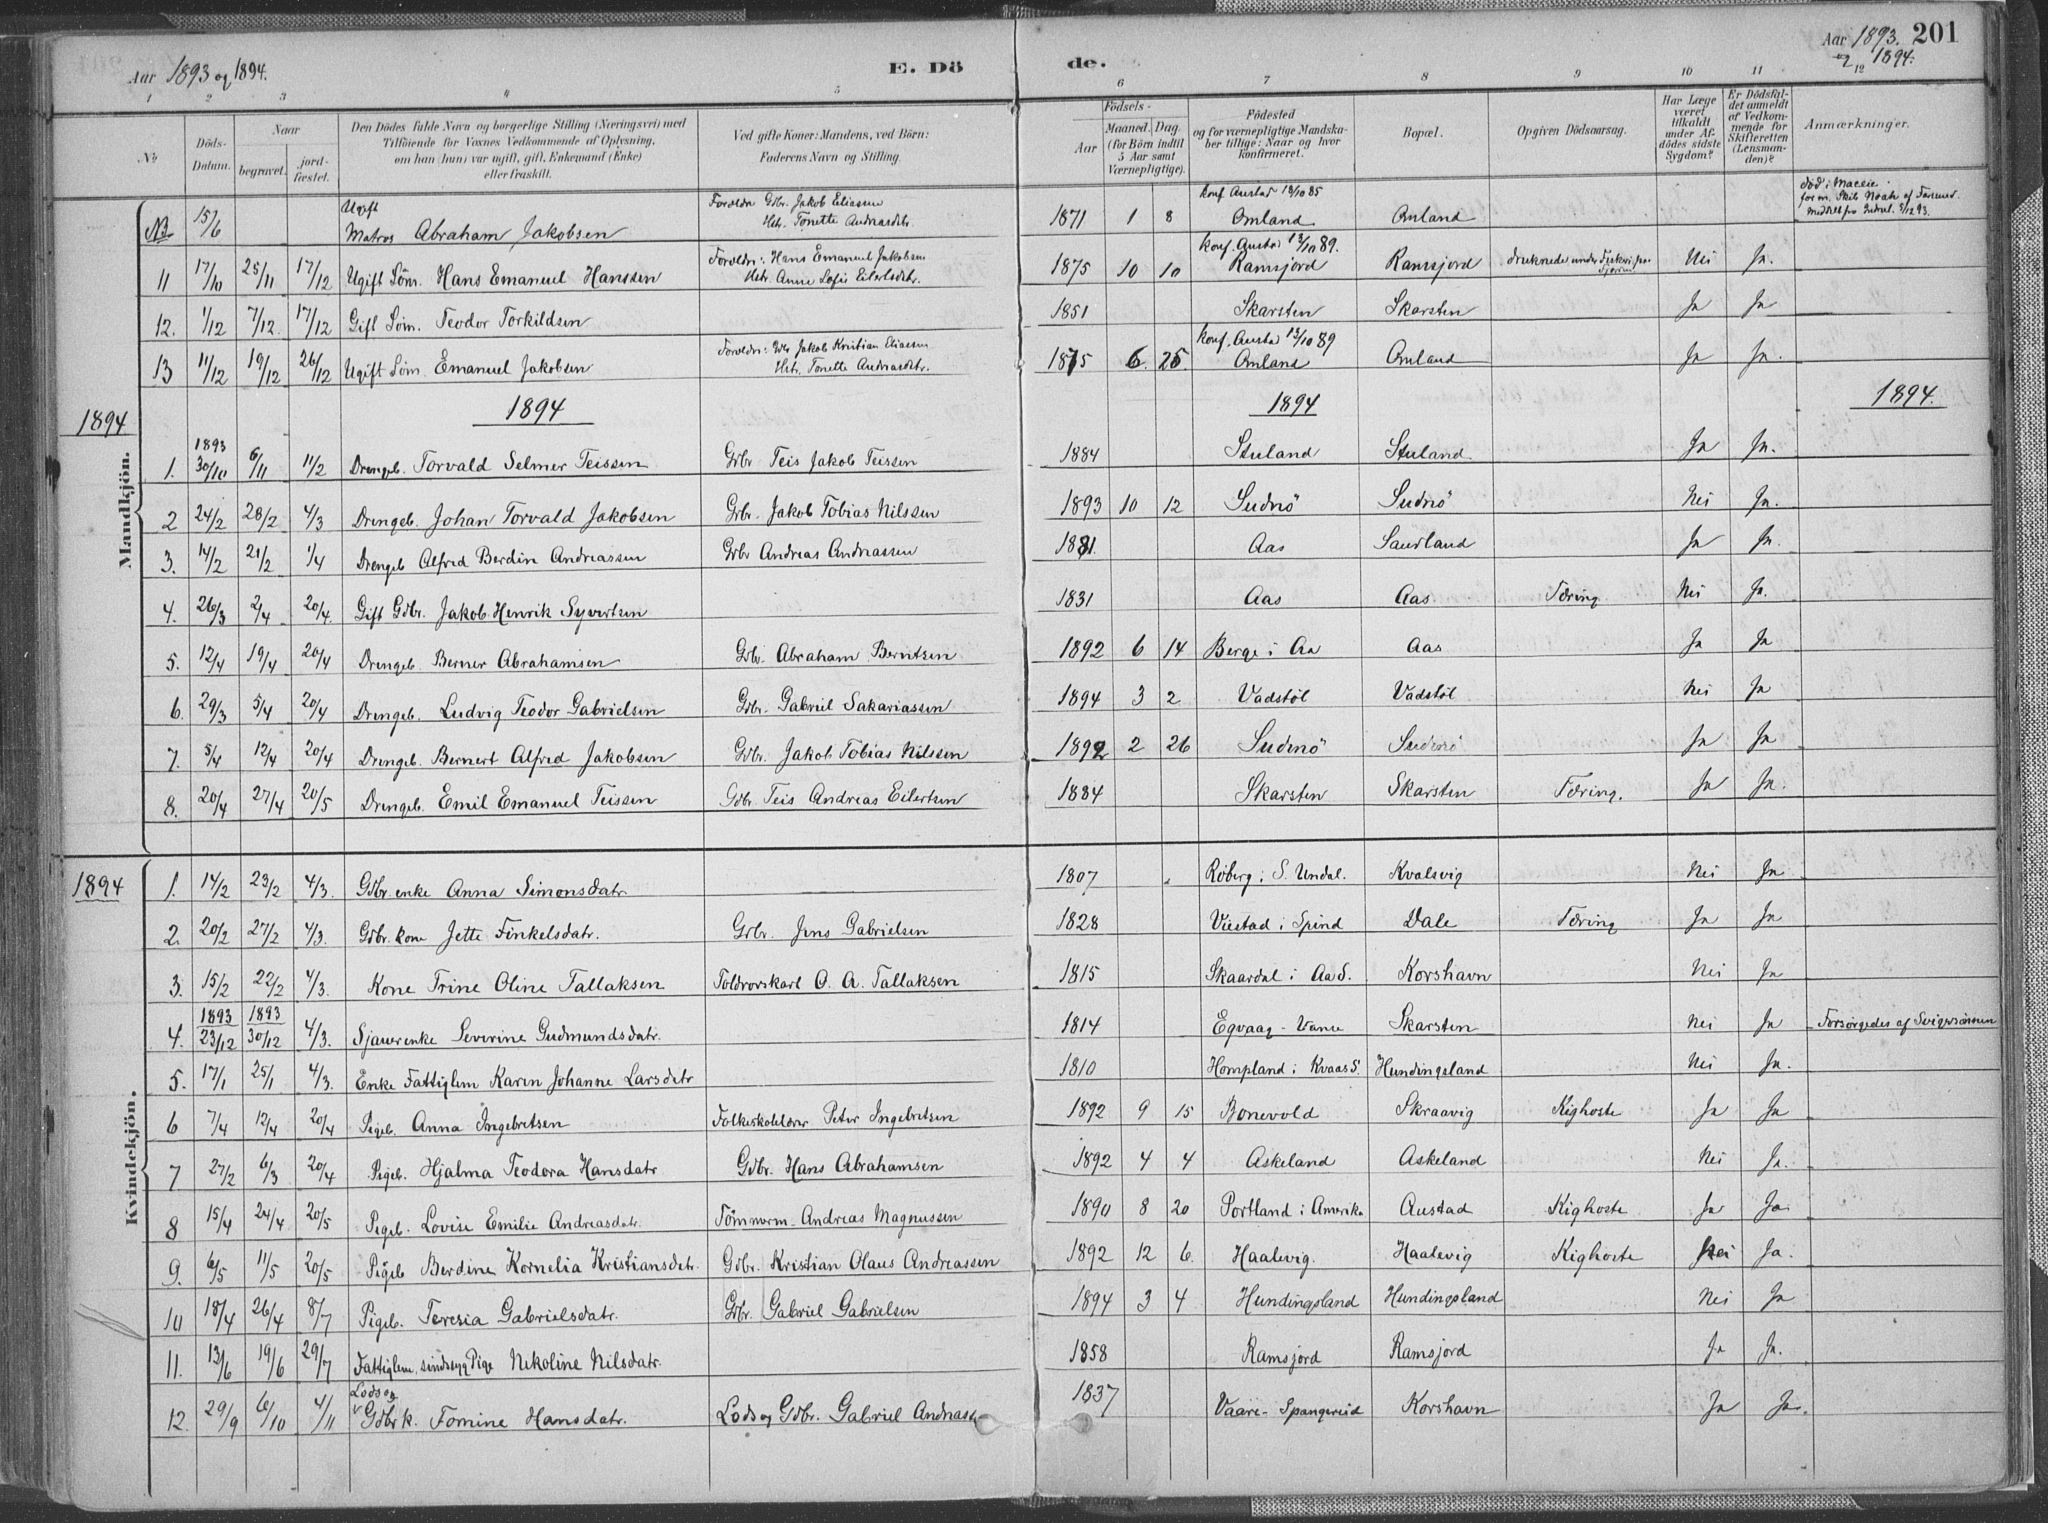 Aar 1893 og 1894.
E. Dö
de.
Aar 1893. 201
og 1894.
1 2 3 4 5 6 7 8 9 10 11 12
No
Döds-Datum.
Naar
begravet.
jord-fæstet.
Den Dödes fulde Navn og borgerlige Stilling (Næringsvei) med
Tilföiende for Voxnes Vedkommende af Oplysning,
om han (hun) var ugift, gift, Enkemand (Enke)
eller fraskilt.
Ved gifte Koner: Mandens, ved Börn:
Faderens Navn og Stilling.
Födsels-
Aar
Maaned. Dag.
(for Börn indtil
5 Aar samt
Værnepligtige).
Födested
og for værnepligtige Mandska-
ber tillige: Naar og hvor
konfirmeret.
Bopæl.
Opgiven Dödsaarsag.
Har Læge
været
tilkaldt
under Af-
dödes sidste
Sygdom?
Er Dödsfal-
det anmeldt
af Vedkom-
mende for
Skifteretten
(Lensman-
den)?
Anmærkninger.
NB. 15/6 Ugift Matros Abraham Jakobsen Forældre Gdbr. Jakob Eliassen Hstr. Tonette Andreasdtr. 1871 1 8 konf. Austad 18/10 85 Omland Omland
11 17/10 25/11 17/12 Ugift Söm. Hans Emanuel Hanssen Forældre: Hans Emanuel Jakobsen Hstr. Anne Sofie Eilertsdtr. 1875 10 10 konf. Austad 13/10 89. Ramsjord Ramsjord druknede under Nei Ja.
12. 1/12 7/12. 17/12 Gift Söm. Teodor Torkildsen 1851 Skarsten Skarsten Ja Ja
13 11/12 19/12 26/12 Ugift Söm. Emanuel Jakobsen Forældr: Gdbr Jakob Kristian Eliassen Hstr. Tonette Andreasdtr. 1875 6. 25. konf. Austad 13/10 89 Omland Omland Ja Ja.
1894 1894 1894 1894.
Mandkjön.
1. 1893 30/10 6/11 11/2 Drengeb. Torvald Selmer Teissen Gdbr Teis Jakob Teissen 1884 Stuland Stuland. Ja Ja.
2 24/2 28/2 4/3 Drengeb. Johan Torvald Jakobsen Gdbr. Jakob Tobias Nilssen 1893 10 12 Sudnö Sudnö Nei Ja.
3. 14/2 21/2 1/4 Drengeb Alfred Berdin Andreassen Gdbr Andreas Andreassen 1881. Aas Saurland Ja Ja.
4. 26/3 2/4 20/4. Gift Gdbr. Jakob Henrik Syvertsen 1831 Aas Aas. Tæring. Nei Ja.
5. 12/4 19/4 20/4 Drengeb. Berner Abrahamsen Gdbr. Abraham Berntsen 1892 6 14 Berge i Aa Aas Ja Ja
6. 29/3 5/4 20/4 Drengeb. Ludvig Teodor Gabrielsen Gdbr. Gabriel Sakariassen 1894 3 2 Vadstöl Vadstöl Nei Ja
7. 5/4 12/4 20/4 Drengeb. Bernert Alfred Jakobsen Gdbr. Jakob Tobias Nilssen 1892 2 26 Sudnö Sudnö Ja Ja
8. 20/4 27/4 20/5 Drengeb. Emil Emanuel Teissen Gdbr. Teis Andreas Eilertsen 1884 Skarsten Skarsten Tæring. Ja Ja.
1894
Kvindekjön.
1. 14/2 23/2 4/3. Gdbr. enke Anna Simonsdatr. 1807 Röberg i S. Undal. Kvalsvig Nei Ja.
2. 20/2 27/2 4/3. Gdbr. kone Jette Finkelsdatr. Gdbr. Jens Gabrielsen 1828 Viestad i Spind Dale Tæring Ja Ja
3. 15/2 22/2 4/3. Kone Trine Oline Tallaksen Toldrorskarl O. A. Tallaksen 1815 Skaardal i Aa S. Korshavn Nei Ja
4. 1893 23/12 1893 30/12 4/3. Sjauerenke Severine Gudmundsdatr. 1814 Egvaag - Vanse Skarsten Nei Ja Forsörgedes af Svigersönnen
5. 17/1 25/1 4/3. Enke Fattiglem Karen Johanne Larsdatr 1810 Hompland i Kvaas S. Hundingsland Nei Ja.
6 7/4 12/4 20/4 Pigeb. Anna Ingebretsen Folkeskolelærer Peter Ingebretsen 1892 9 15 Bonevold Skraavig Kighoste Ja Ja
7 27/2 6/3 20/4 Pigeb. Hjalma Teodora Hansdatr Gdbr. Hans Abrahamsen 1892 4 4 Askeland Askeland Nei Ja.
8 15/4 24/4 20/5 Pigeb. Lovise Emilie Andreasdatr. Tömmerm. Andreas Magnussen 1890 8 20 Portland i Amerika Austad Kighoste Ja Ja
9. 6/5 11/5 20/5 Pigeb Berdine Kornelia Kristiansdatr. Gdbr. Kristian Olaus Andreassen 1892 12 6. Haalevig. Haalevig Kighoste Nei Ja.
10 18/4 26/4 8/7 Pigeb. Teresia Gabrielsdatr. Gdbr. Gabriel Gabrielsen 1894 3 4 Hundingsland Hundingsland Nei Ja
11. 13/6 19/6 29/7 Fattiglem, sindssyg Pige Nikoline Nilsdatr. 1858 Ramsjord Ramsjord Ja Ja.
12. 29/9 6/10 4/11 Lods og Gdbr k. Tomine Hansdatr. Lods og Gdbr. Gabriel Andreas 1837 Vaare - Spangereid Korshavn Ja Ja.